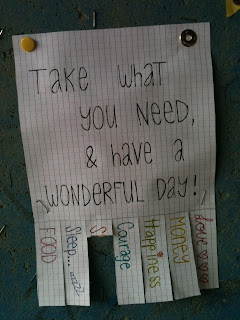 TAKE WHAT
YOU NEED,
& HAVE A
WONDERFUL DAY!
FOOD
Sleep... zzzz
S
Courage
Happiness
MONEY
Love ♡♡♡